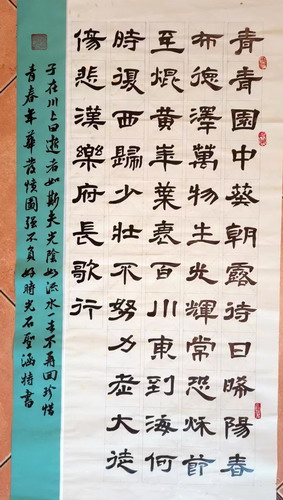 青青園中葵朝露待日晞陽春
布德澤萬物生光輝常恐秋節
至焜黃華葉衰百川東到海何
時復西歸少壯不努力老大徒
傷悲漢樂府長歌行
子在川上曰逝者如斯夫光陰如流水一去不再回珍惜
青春年華發憤圖強不負好時光石聖涵特書